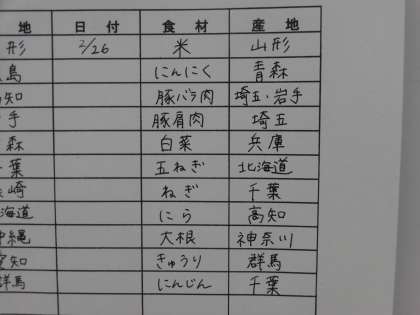 地 日付 食材 産地
形 2/26 米 山形
島 にんにく 青森
知 豚バラ肉 埼玉・岩手
手 豚肩肉 埼玉
森 白菜 兵庫
葉 玉ねぎ 北海道
崎 ねぎ 千葉
海道 にら 高知
縄 大根 神奈川
知 きゅうり 群馬
群馬 にんじん 千葉